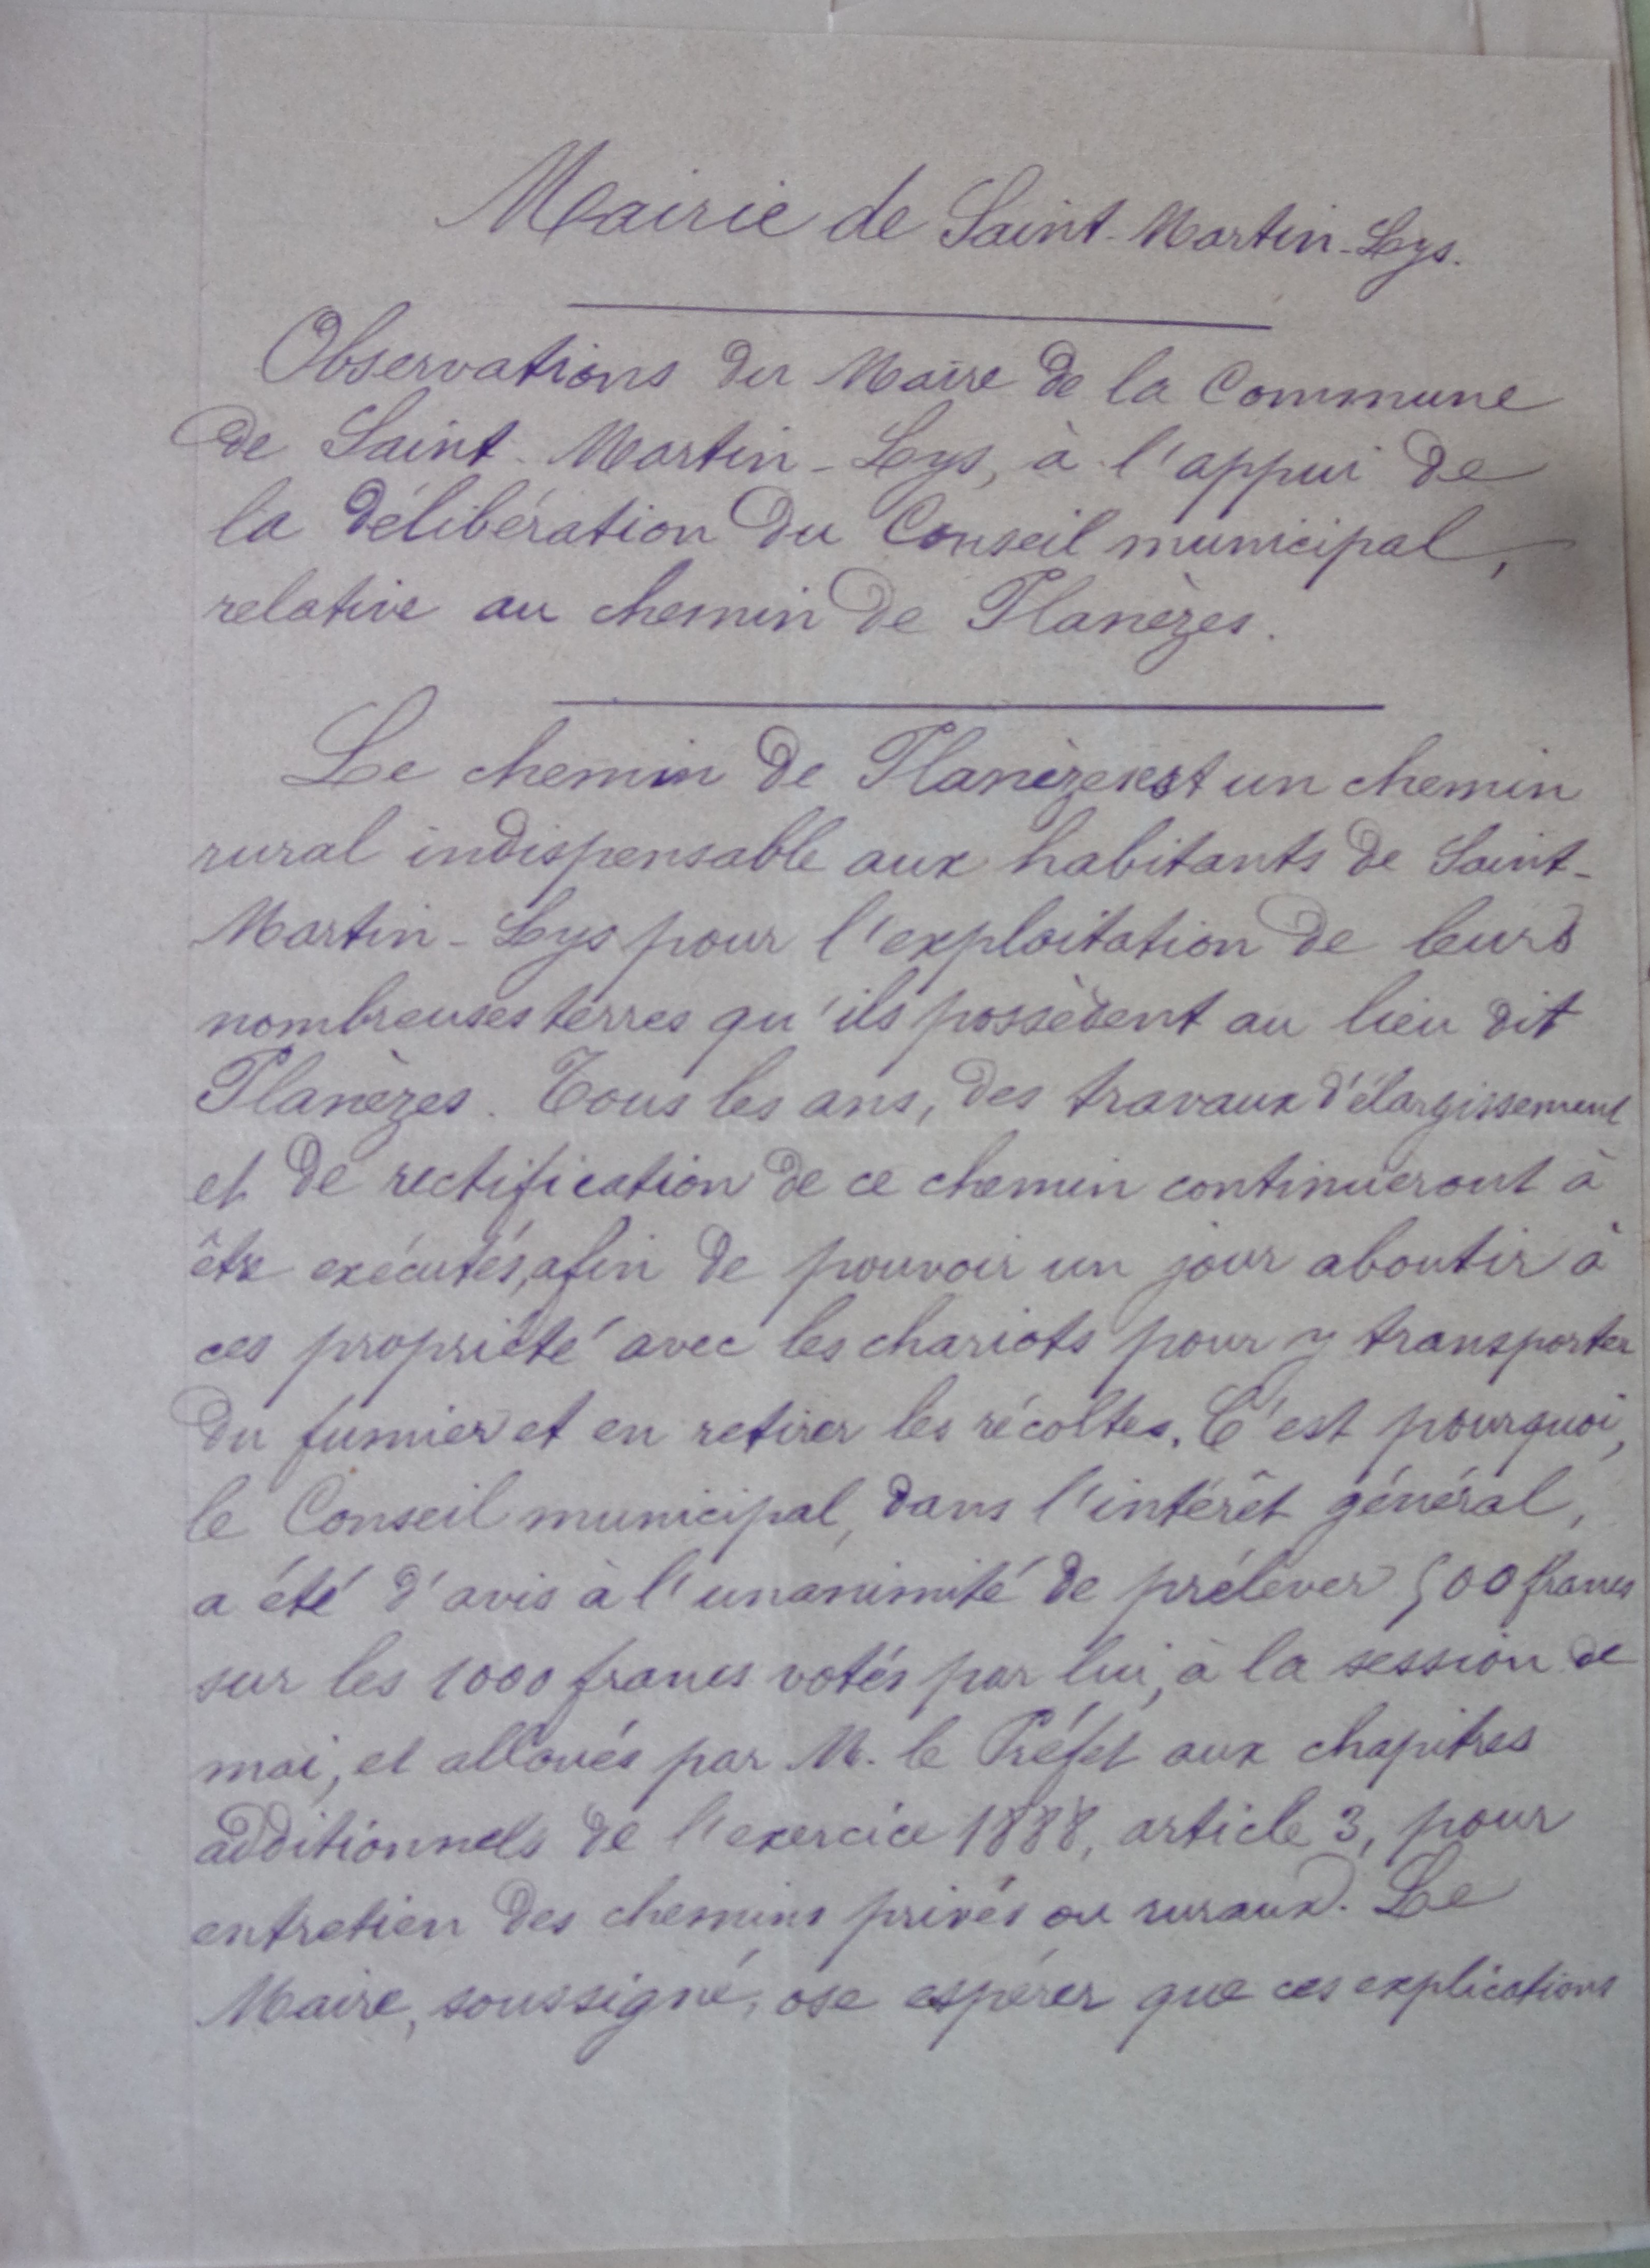 Mairie de Saint-Martin-Lys.
Observations du Maire de la Commune
de Saint-Martin-Lys, à l'appui de
la délibération du Conseil municipal,
relative au chemin de Planèzes.
Le chemin de Planèzes est un chemin
rural indispensable aux habitants de Saint-
Martin-Lys pour l'exploitation de leurs
nombreuses terres qu'ils possèdent au lieu dit
Planèzes. Tous les ans, des travaux d'élargissement
et de rectification de ce chemin continueront à
être exécutés, afin de pouvoir un jour aboutir à
ces propriété avec les chariots pour y transporter
du fumier et en retirer les récoltes. C'est pourquoi,
le Conseil municipal, dans l'intérêt général,
a été d'avis à l'unanimité de prélever 500 francs
sur les 1000 francs votés par lui, à la session de
mai, et alloués par M. le Préfet aux chapitres
additionnels de l'exercice 1888, article 3, pour
entretien des chemins privés ou ruraux. Le
Maire, soussigné, ose espérer que ces explications